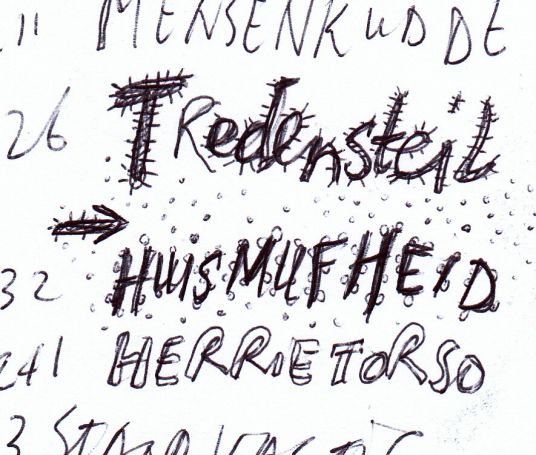 11 MENSENKUDDE
26 Tredensteil
32 HUISMUFHEID
241 HERRIETORSO
3